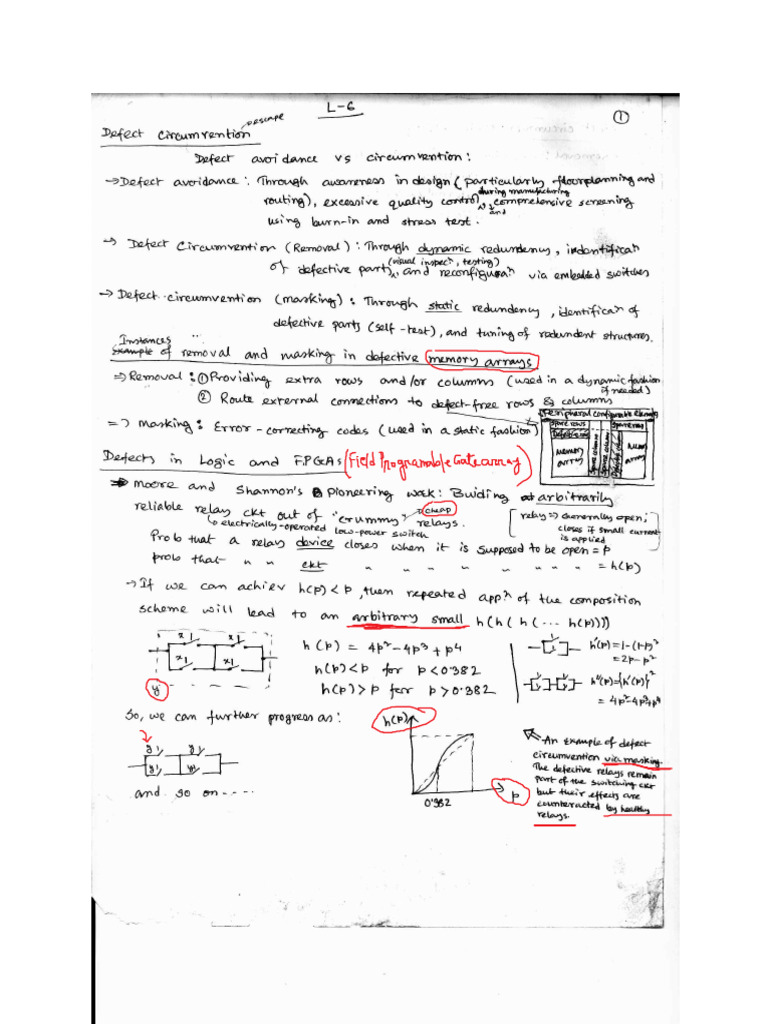 L-6
①
Defect Circumvention
escape
Defect avoidance vs circumvention:
→ Defect avoidance: Through awareness in design (particularly floorplanning and
during manufacturing
routing), excessive quality control, comprehensive screening
and
using burn-in and stress test.
→ Defect Circumvention (Removal): Through dynamic redundency, indentificaⁿ
(visual inspecⁿ, testing)
of defective parts, and reconfiguraⁿ via embedded switches
→ Defect circumvention (masking): Through static redundency, identificaⁿ of
defective parts (self-test), and tuning of redundent structures.
Instances
Example of removal and masking in defective memory arrays
⇒ Removal: ① Providing extra rows and/or columns (used in a dynamic fashion
if needed)
② Route external connections to defect-free rows & columns
⇒ masking: Error-correcting codes (used in a static fashion)
Peripheral configurable Elements
Spare rows
Spare rows
Defective row
memory array
Spare columns
Spare columns
Defective column
Mem array
Defects in Logic and FPGAs (Field Programable Gate array)
⇒ Moore and Shannon's Pioneering work: Buiding arbitrarily
reliable relay ckt out of "crummy" relays.
cheap
↳ electrically-operated low-power switch
[relay ⇒ Generally open;
closes if small current
is applied]
Prob that a relay device closes when it is supposed to be open = p
prob that " " ckt " " " " " " " = h(p)
→ If we can achiev h(p) < p, then repeated appⁿ of the composition
scheme will lead to an arbitrary small h(h(h(... h(p))))
x
x
x
x
y
h(p) = 4p² - 4p³ + p⁴
h(p) < p for p < 0.382
h(p) > p for p > 0.382
h'(p) = 1-(1-p)²
= 2p - p²
h''(p) = {h'(p)}²
= 4p² - 4p³ + p⁴
So, we can further progress as:
y
y
y
y
and so on ----
h(p)
p
0.382
An example of defect
circumvention via masking.
The defective relays remain
part of the switching ckt
but their effects are
counteracted by healthy
relays.